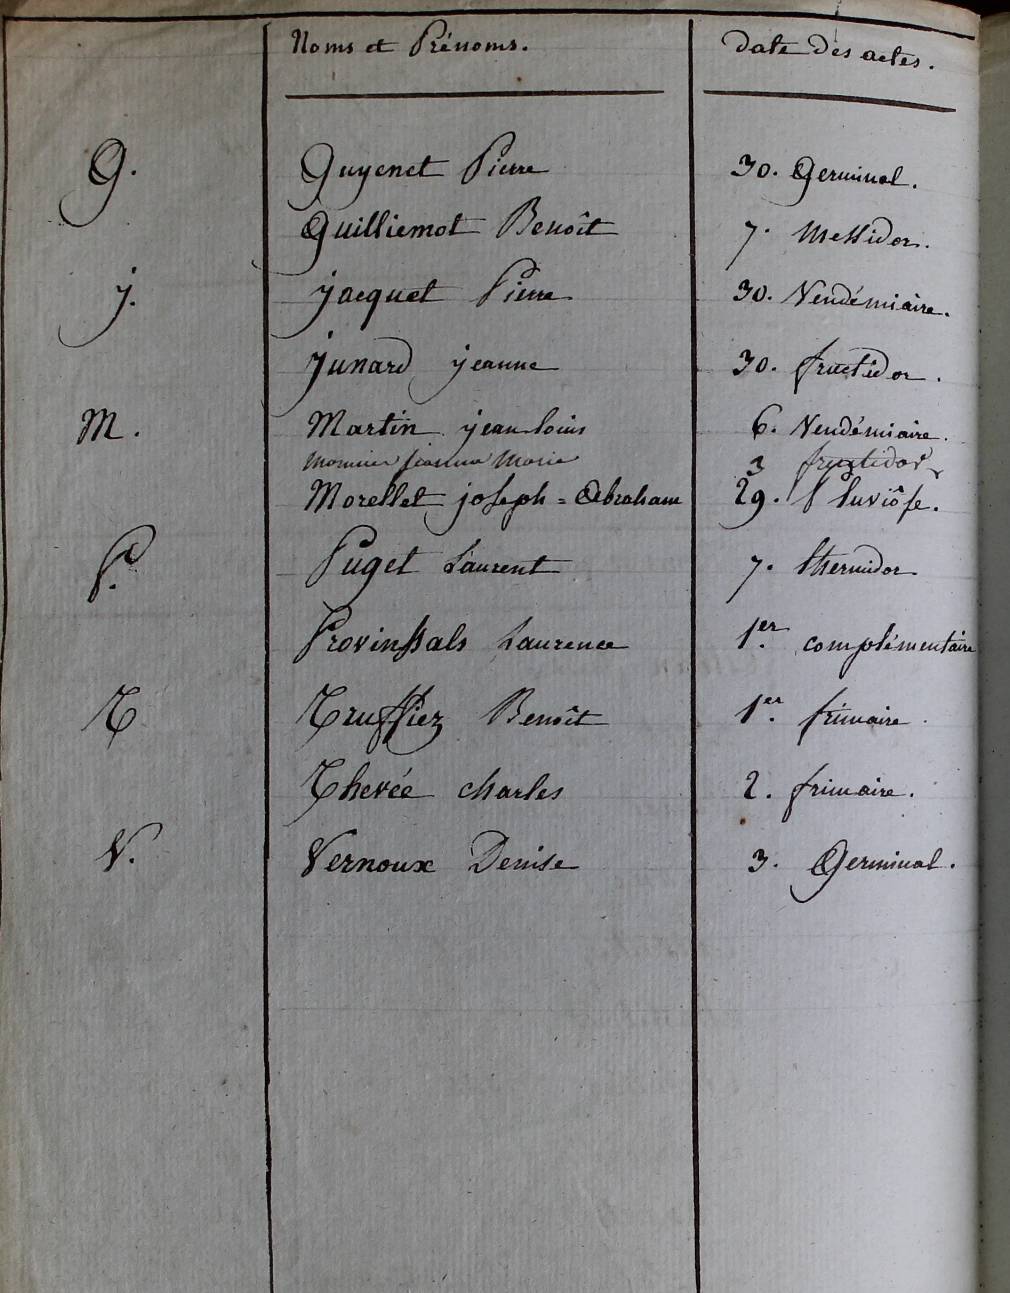 Noms et Prénoms. Date des actes.
G. Guyenet Pierre 30. Germinal.
Guilliemot Benoît 7. Messidor.
j. jacquet Pierre 30. Vendémiaire.
junard jeanne 30. fructidor.
M. Martin jean louis 6. Vendémiaire.
Monnier jeanne Marie 3 fructidor
Morellet joseph = Abraham 29. Pluviôse.
P. Puget Laurent 7. thermidor
Provinssals Laurence 1er. complémentaire
T Truffiez Benoît 1er. frimaire.
Thevée charles 2. frimaire.
V. Vernoux Denise 3. Germinal.